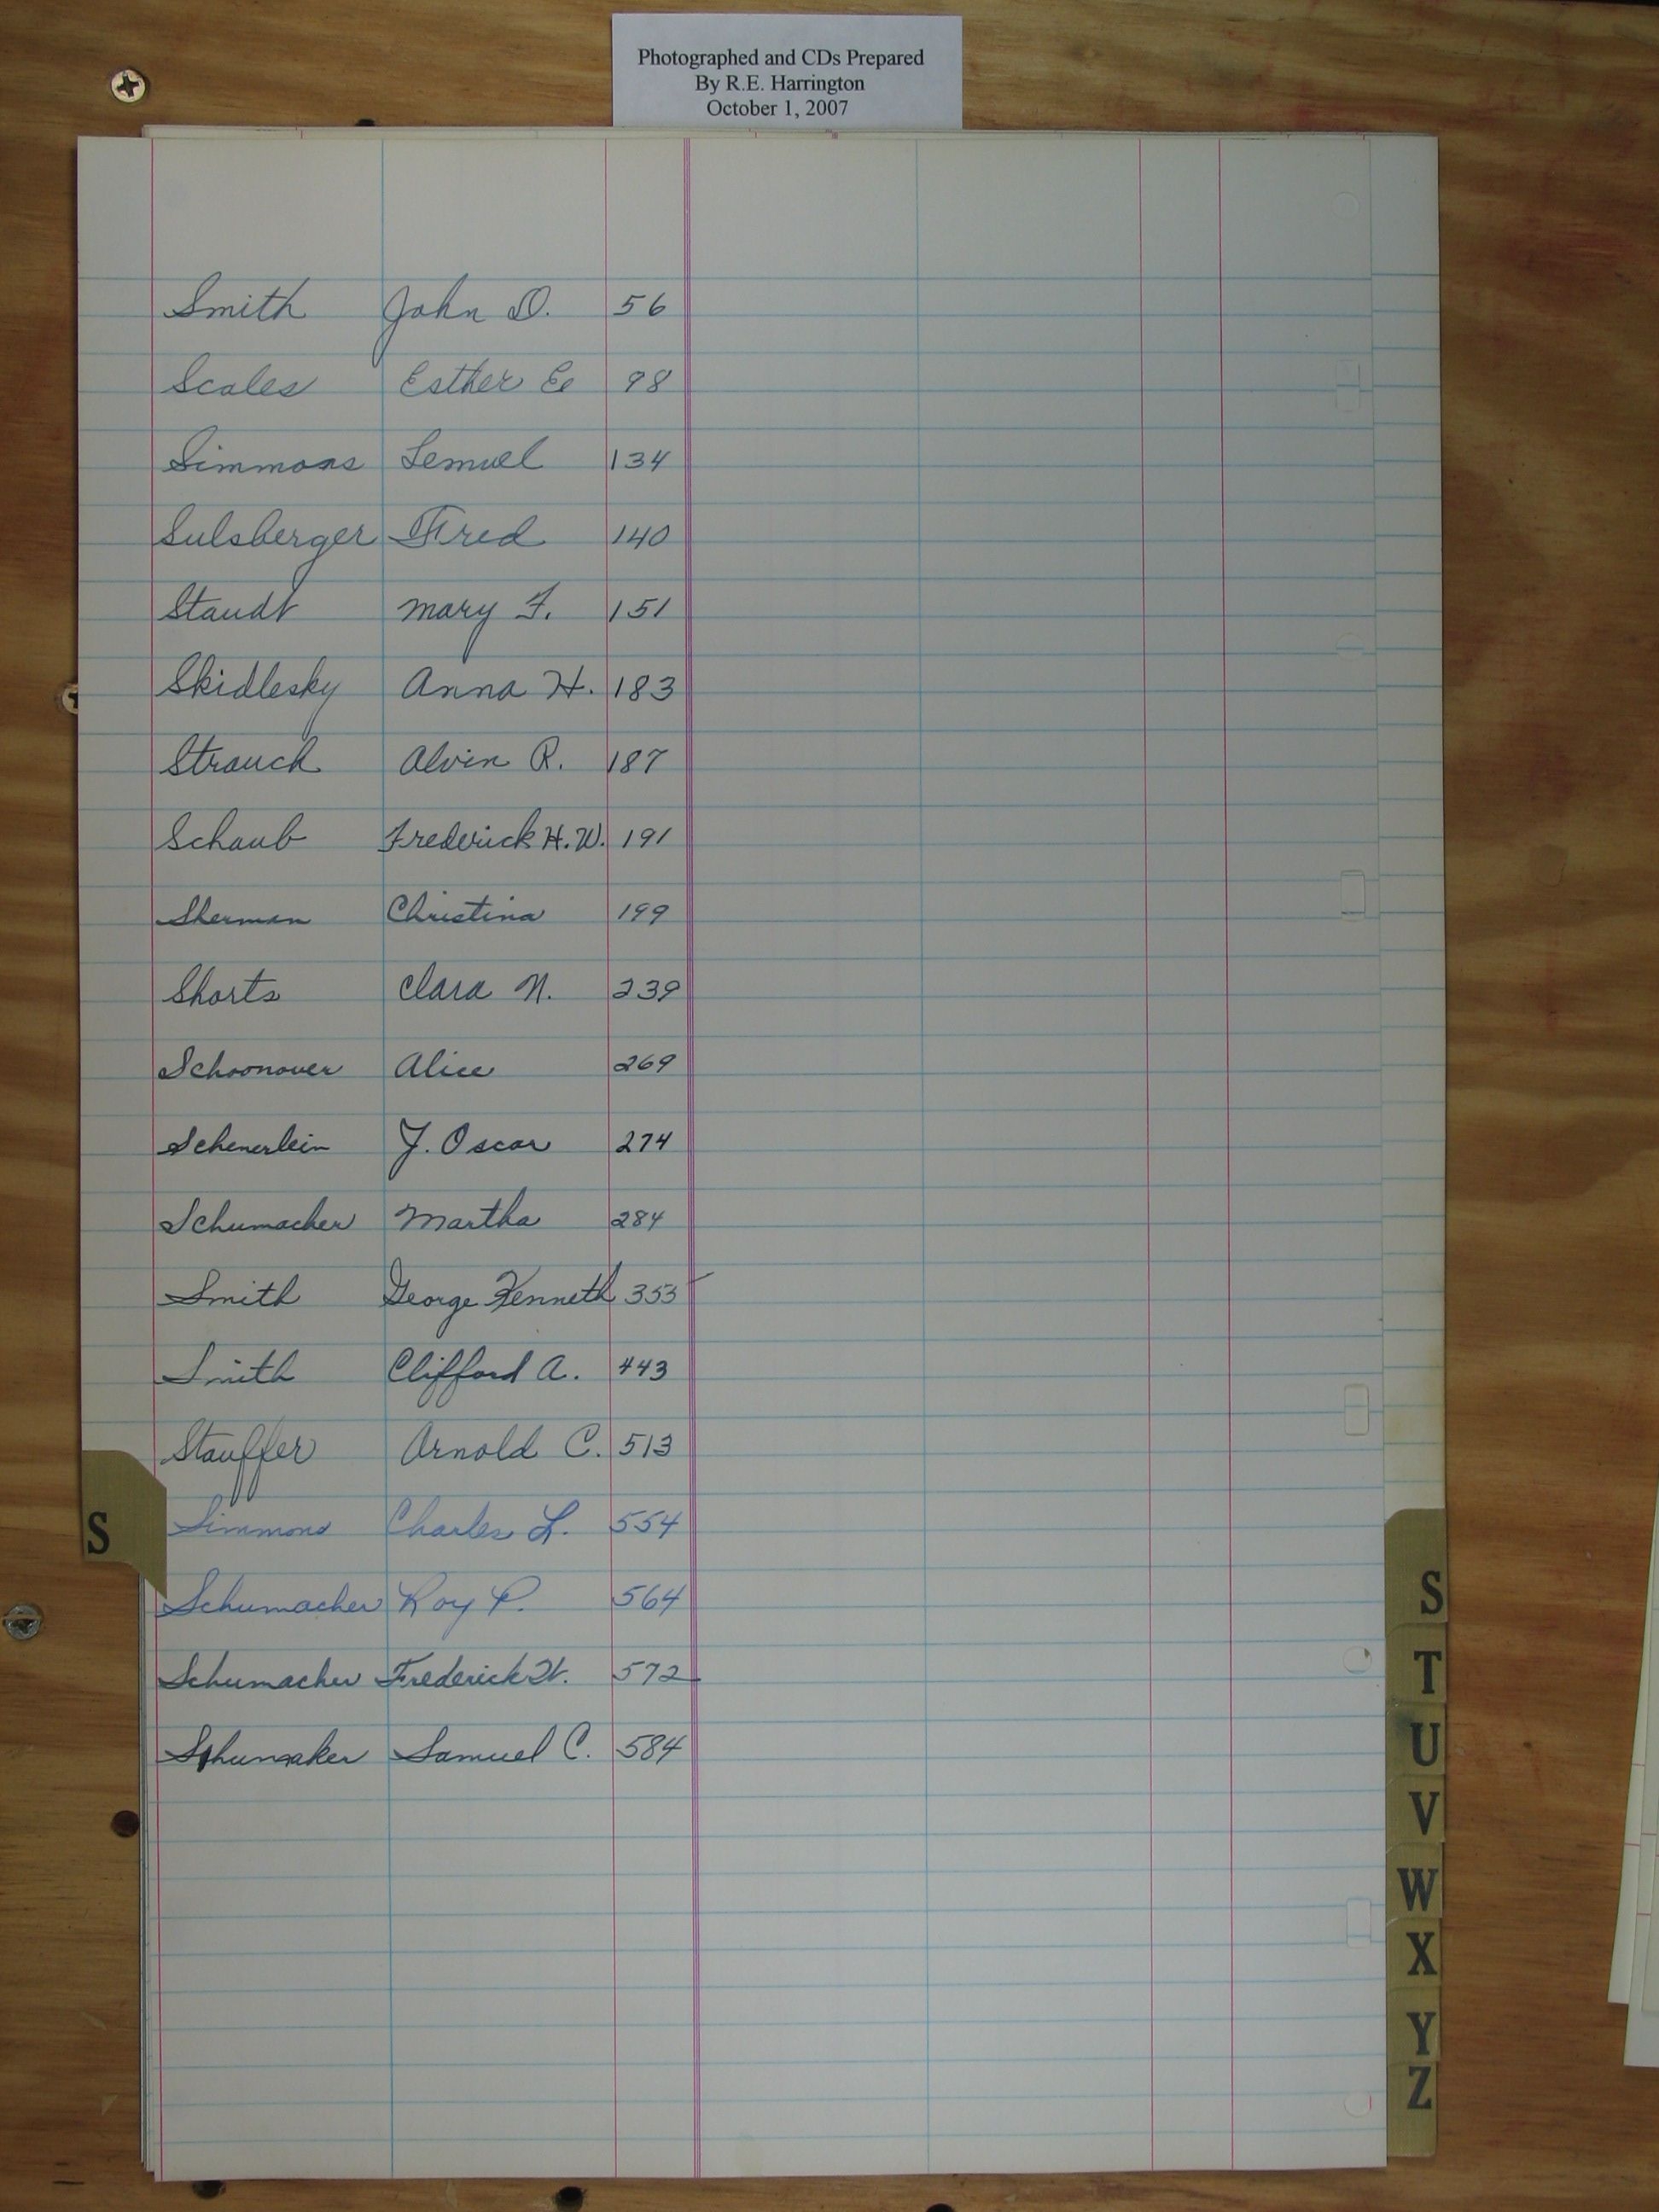 Photographed and CDs Prepared
By R.E. Harrington
October 1, 2007
Smith John D. 56
Scales Esther E. 98
Simmons Lemuel 134
Sulsberger Fred 140
Staudt Mary F. 151
Skidlesky Anna H. 183
Strauch Alvin R. 187
Schaub Frederick H.W. 191
Sherman Christina 199
Shorts Clara N. 239
Schoonover Alice 269
Schenerlein J. Oscar 274
Schumacher Martha 284
Smith George Kenneth 353
Smith Clifford A. 443
Stauffer Arnold C. 513
Simmons Charles L. 554
Schumacher Roy P. 564
Schumacher Frederick W. 572
Schumaker Samuel C. 584
S
S
T
U
V
W
X
Y
Z